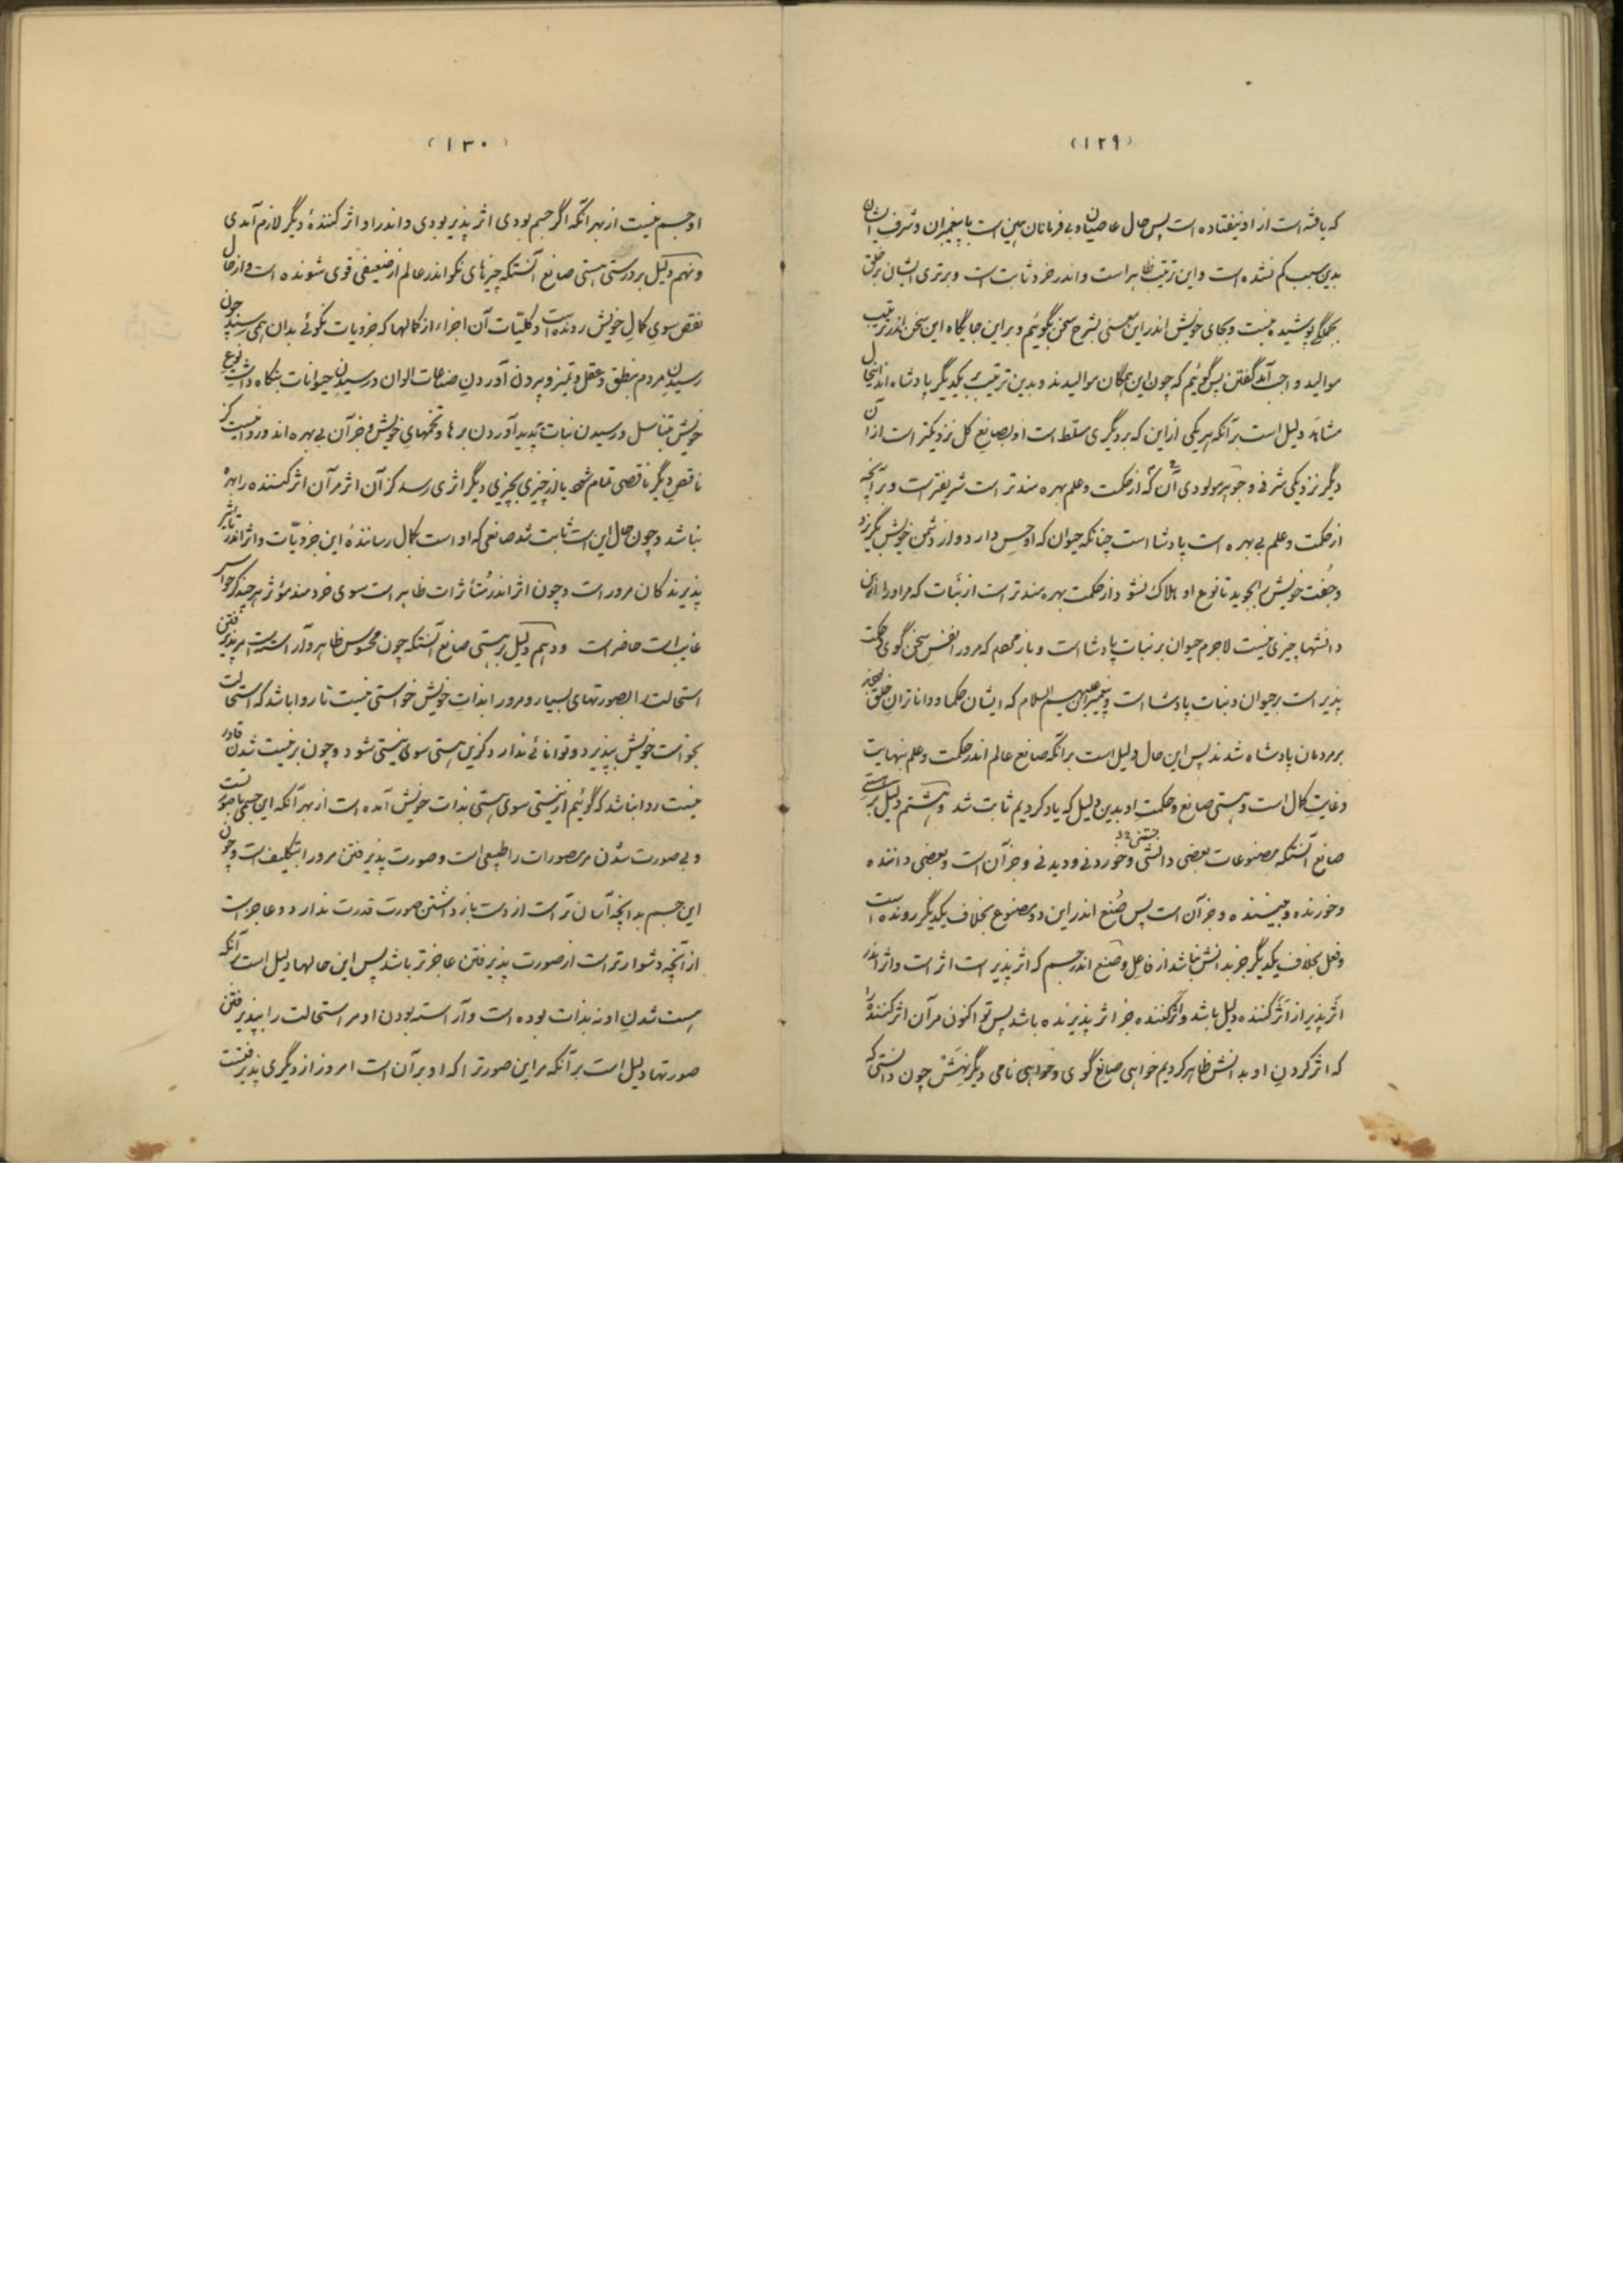 (۱۲۹)
که یافته است از او نیفتاده است پس حال عاصیان و بی فرمانان همین است با پیغمبران و شرف ایشان
بدین سبب کم نشده است و این ترتیب ظاهر است و اندر خرد ثابت است و برتری ایشان بر خلق
بجملگی پوشیده نیست و بجای خویش اندر این معنی بشرح سخن بگوئیم و بر این جایگاه این سخن اندر ترتیب
موالید واجب آمد گفتن پس گوئیم که چون این همگان موالیدند و بدین ترتیب بر یکدیگر پادشاه اند اینحال
مشاهد دلیل است بر آنکه هر یکی از این که بر دیگری مسلط است او بصانع کل نزدیکتر است از آن
دیگر نزدیکی شرفی و جوهر مولودی آن که از حکمت و علم بهره مندتر است شریفتر است و بر آنچه
از حکمت و علم بی بهره است پادشا است چنانکه حیوان که او حس دارد و از دشمن خویش بگریزد
و جفت خویش بجوید تا نوع او هلاک نشود از حکمت بهره مندتر است از نبات که مر او را از این
دانشها چیزی نیست لاجرم حیوان بر نبات پادشا است و باز مردم که مرو را نفس سخن گوی حکمت
پذیر است بر حیوان و نبات پادشا است و پیغمبران علیهم السلام که ایشان حکما و داناتران خلق
بر مردمان پادشاه شدند پس این حال دلیل است بر آنکه صانع عالم اندر حکمت و علم بنهایت
و غایت کمال است و هستی صانع و حکمت او بدین دلیل که یاد کردیم ثابت شد و هشتم دلیل بر هستی
صانع آنستکه مصنوعات بعضی دانشی و خوردنی و دیدنی و جز آن است و بعضی داننده
و خورنده و بیننده و جز آن است پس صنع اندر این دو مصنوع بخلاف یکدیگر رونده است
و فعل بخلاف یکدیگر جز بدانش نباشد از فاعل و صنع اندر جسم که اثر پذیر است اثر است و اثر اندر
اثر پذیر از اثر کننده دلیل باشد و اثر کننده جز اثر پذیرنده باشد پس تو اکنون مر آن اثر کننده را
که اثر کردن او بدانش ظاهر کردیم خواهی صانع گوی و خواهی نامی دیگر نهش چون دانستی که
(۱۳۰)
او جسم نیست از بهر آنکه اگر جسم بودی اثر پذیر بودی و اندر او اثر کنندهٔ دیگر لازم آمدی
و نهم دلیل بر درستی هستی صانع آنستکه چیزهای نکو اندر عالم از ضعیفی قوی شونده است و از حال
نقص سوی کمال خویش رونده است و کلیات آن اجزاء از کمالها که جزویات نکوئی بدان همی رسند چون
رسیدن مردم بنطق و عقل و تمیز و بیرون آوردن صناعات الوان و رسیدن حیوانات بنگاه داشت نوع
خویش بتناسل و رسیدن نبات پدید آوردن برها و تخمهای خویش و جز آن بی بهره اند و روا نیست کز
ناقص دیگر ناقصی تمام شود یا از چیزی بچیزی دیگر اثری رسد کز آن اثر مر آن اثر کننده را بهره
نباشد و چون حال این است ثابت شد صانعی که او است کمال رسانندهٔ این جزویّات و اثر اندر تاثیر
پذیرندگان مرور است و چون اثر اندر متأثرات ظاهر است سوی خردمند مؤثر هر چند کز حواس
غایب است حاضر است و دهم دلیل بر هستی صانع آنستکه چون محسوس ظاهر و آراسته است مر پذیرفتن
استحالت را بصورتهای بسیار و مرور ا بذات خویش خواستی نیست تا روا باشد که استحالت
بخواست خویش بپذیرد و توانائی ندارد کزین هستی سوی نیستی شود و چون بر نیست شدن قادر
نیست روا نباشد که گوئیم از نیستی سوی هستی بذات خویش آمده است از بهر آنکه این جسمی با صورتست
و بی صورت شدن مر مصورات را طبیعی است و صورت پذیرفتن مرورا بتکلیف است و چون
این جسم بدانچه آسان تر است از دست باز داشتن صورت قدرت ندارد و عاجز است
از آنچه دشوارتر است از صورت پذیرفتن عاجزتر باشد پس این حالها دلیل است بر آنکه
هست شدن او نه بذات بوده است و آراسته بودن او مر استحالت را بپذیرفتن
صورتها دلیل است بر آنکه مر این صورترا که او بر آن است امروز از دیگری پذیرفتست